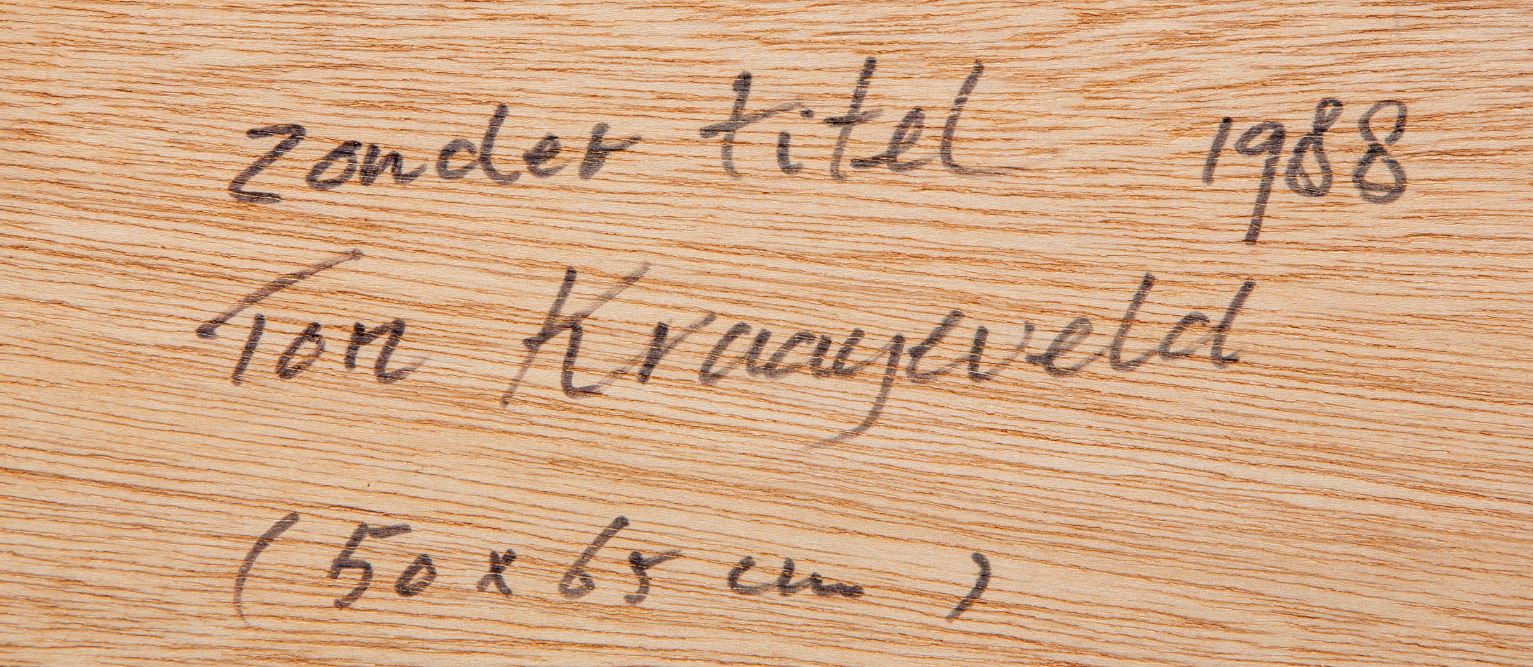 zonder titel 1988
Ton Kraayeveld
(50 x 65 cm)